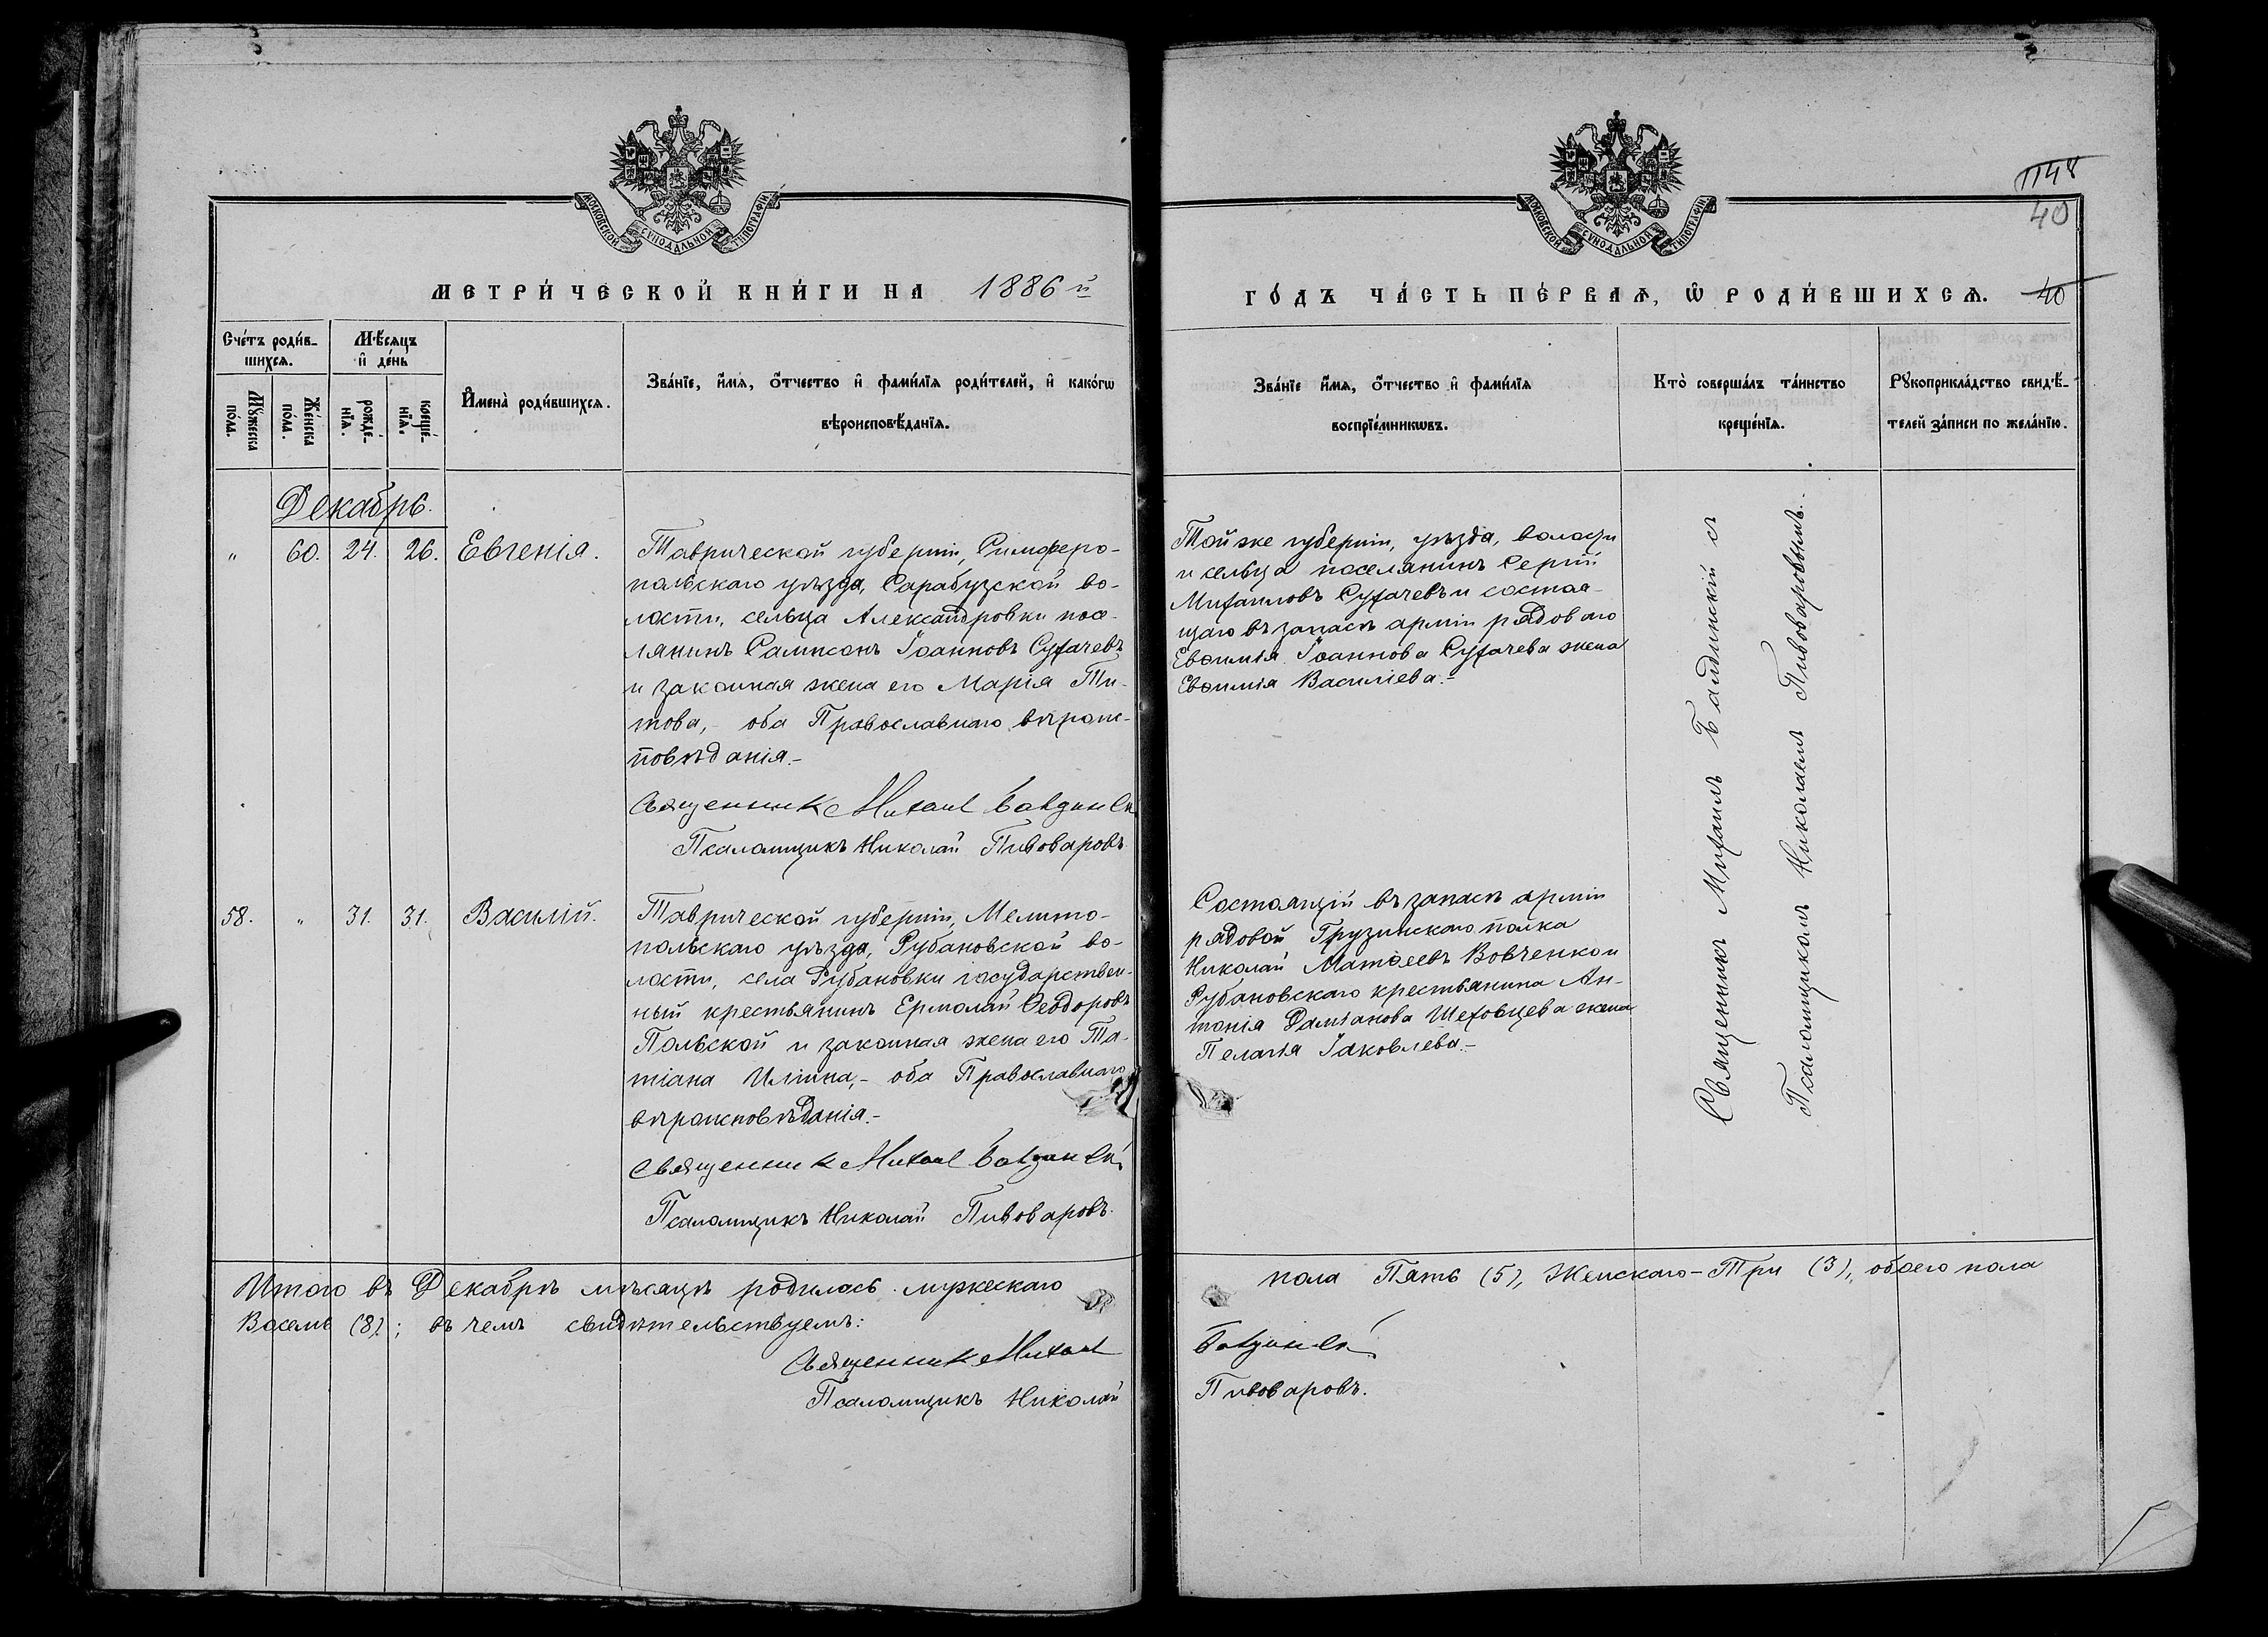 МОСКОВСКОЙ СУНОДАЛЬНОЙ ТИПОГРАФІИ
МЕТРИ́ЧЕСКОЙ КНИ́ГИ НА 1886 й
Сче́тъ роди́в-
шихсѧ.
Мѣ́сѧцъ
и҆ де́нь
Мꙋ́жеска
по́ла.
Же́нска
по́ла.
рожде́-
нїѧ.
креще́-
нїѧ.
И҆мена̀ роди́вшихсѧ.
Зва́нїе, и҆́мѧ, о҆́тчество и҆ фами́лїѧ роди́телей, и҆ како́гѡ
вѣроисповѣ́данїѧ.
Декабрь.
" 60. 24. 26. Евгенія.
Таврической губерніи, Симферо-
польскаго уѣзда, Сарабузской во-
лости, сельца Александровки посе-
лянинъ Сампсонъ Іоанновъ Сухачевъ
и законная жена его Марія Ти-
това,- оба Православнаго вѣроис-
повѣданія.-
Священникъ Михаилъ Балдинскі
Псаломщикъ Николай Пивоваровъ
58. " 31. 31. Василій.
Таврической губерніи, Мелито-
польскаго уѣзда, Рубановской во-
лости, села Рубановки государствен-
ный крестьянинъ Ермолай Ѳеодоровъ
Польской и законная жена его Та-
тіана Иліина,- оба Православнаго
вѣроисповѣданія.-
Священникъ Михаилъ Балдинскі
Псаломщикъ Николай Пивоваровъ.
Итого въ Декабрѣ мѣсяцѣ родилось мужескаго
Восемь (8); въ чемъ свидѣтельствуемъ:
Священникъ Михаилъ
Псаломщикъ Николай
МОСКОВСКОЙ СУНОДАЛЬНОЙ ТИПОГРАФІИ
1148
40
ГО́ДЪ ЧА́СТЬ ПЕ́РВАѦ, Ѡ҆ РОДИ́ВШИХСѦ. 40
Зва́нїе и҆́мѧ, о҆́тчество и҆ фами́лїѧ
воспрїе́мникѡвъ.
Кто̀ соверша́лъ та́инство
креще́нїѧ.
Рꙋкоприкла́дство свидѣ́-
телей за́писи по жела́нїю.
Той же губерніи, уѣзда, волости
и сельца поселянинъ Сергій
Михаиловъ Сухачевъ и состоя-
щаго въ запасѣ арміи рядоваго
Евѳимія Іоаннова Сухачева жена
Евѳимія Василіева.-
Состоящій въ запасѣ арміи
рядовой Грузинскаго полка
Николай Матѳеевъ Вовченкои
Рубановскаго крестьянина Ан-
тонія Даміанова Шеховцева жена
Пелагія Іаковлева.-
Священникъ Михаилъ Балдинскій съ
Псаломщикомъ Николаемъ Пивоваровымъ.
пола Пять (5), Женскаго-Три (3), обоего пола
Балдинскі
Пивоваровъ.